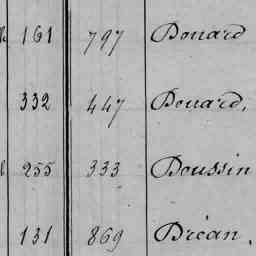 161 797 Bouard
332 447 Bouard,
255 333 Boussin
131 869 Bréan,